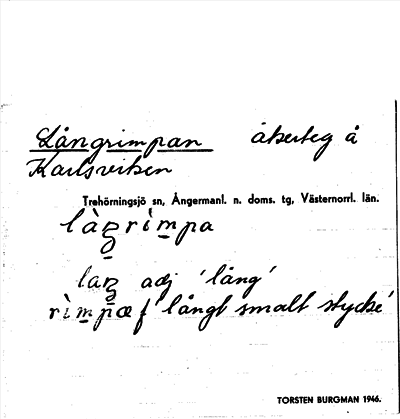 Långrimpan åkerteg å
Karlsviken
Trehörningsjö sn, Ångermanl. n. doms. tg, Västernorrl. län.
làꞑrìm̠pa
laꞑ adj 'lång'
rìm̠pæ f 'långt smalt stycke'
TORSTEN BURGMAN 1946.